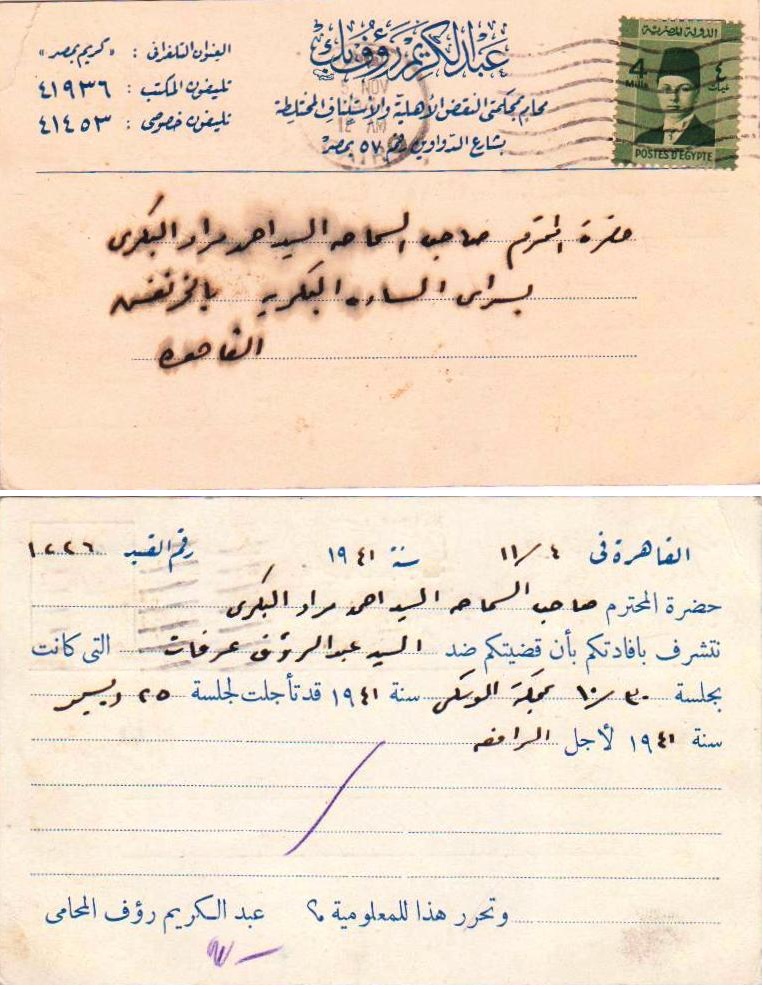 عبد الكريم رؤف بك
العنوان التلغرافى : «كريم بمصر»
تليفون المكتب : ٤١٩٣٦
تليفون خصوصى : ٤١٤٥٣
محام بمحكمتى النقض الأهلية والاستئناف المختلطة
بشارع الدواوين رقم ٥٧ بمصر
الدولة المصرية
4 ٤
Mills مليمات
POSTES D'EGYPTE
5 NOV
12 AM
حضرة المحترم صاحب السماحه السيد احمد مراد البكرى
بسراى الساده البكريه بالخرنفش
القاهره
القاهرة فى ٤/١١ سنة ١٩٤١ رقم القيد ١٢٢٦
حضرة المحترم صاحب السماحه السيد احمد مراد البكرى
نتشرف بافادتكم بأن قضيتكم ضد السيد عبد الرؤف عرفات التى كانت
بجلسة ٣٠/١٠ بمحكمة الموسكى سنة ١٩٤١ قد تأجلت لجلسة ٢٥ ديسمبر
سنة ١٩٤١ لأجل المرافعه
وتحرر هذا للمعلومية م؟ عبد الكريم رؤف المحامى